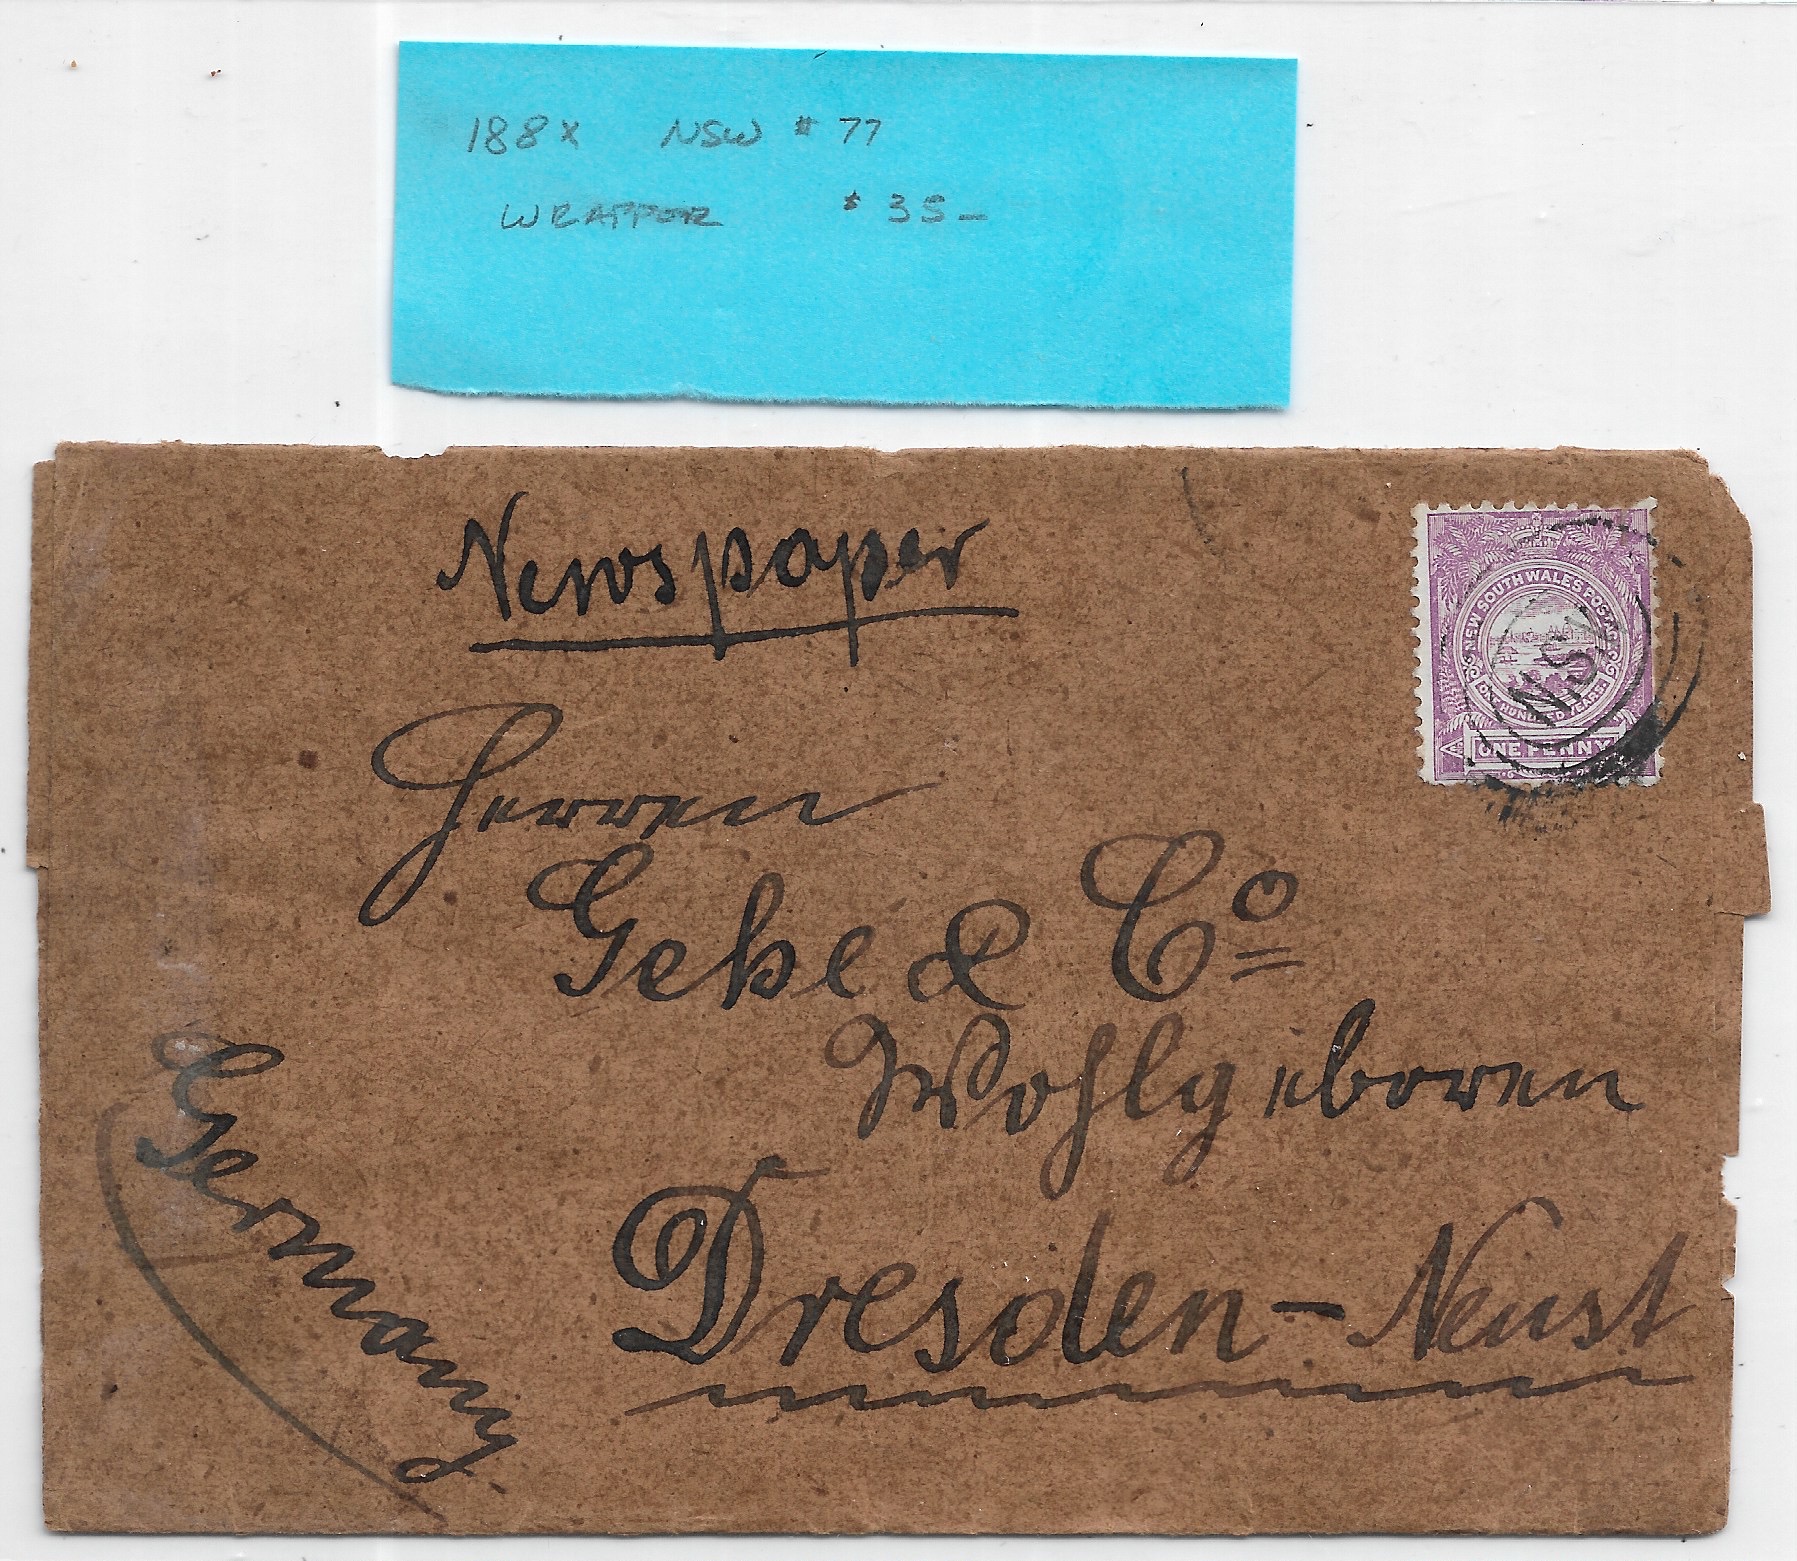 188x NSW # 77
WRAPPER $35–
Newspaper
NEW SOUTH WALES POSTAGE
ONE HUNDRED YEARS.
ONE PENNY
NSW
Herren
Gehe & Co
Wohlgeboren
Dresden-Neust
Germany